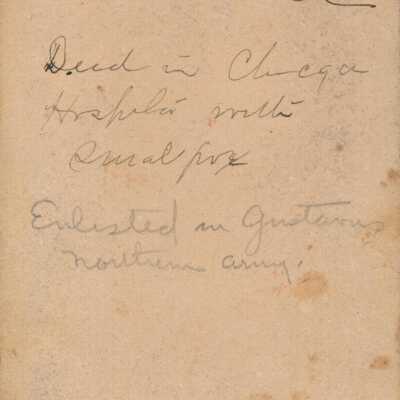 Died in Chicago
Hospital with
Small pox
Enlisted in Gustavus
northern army.